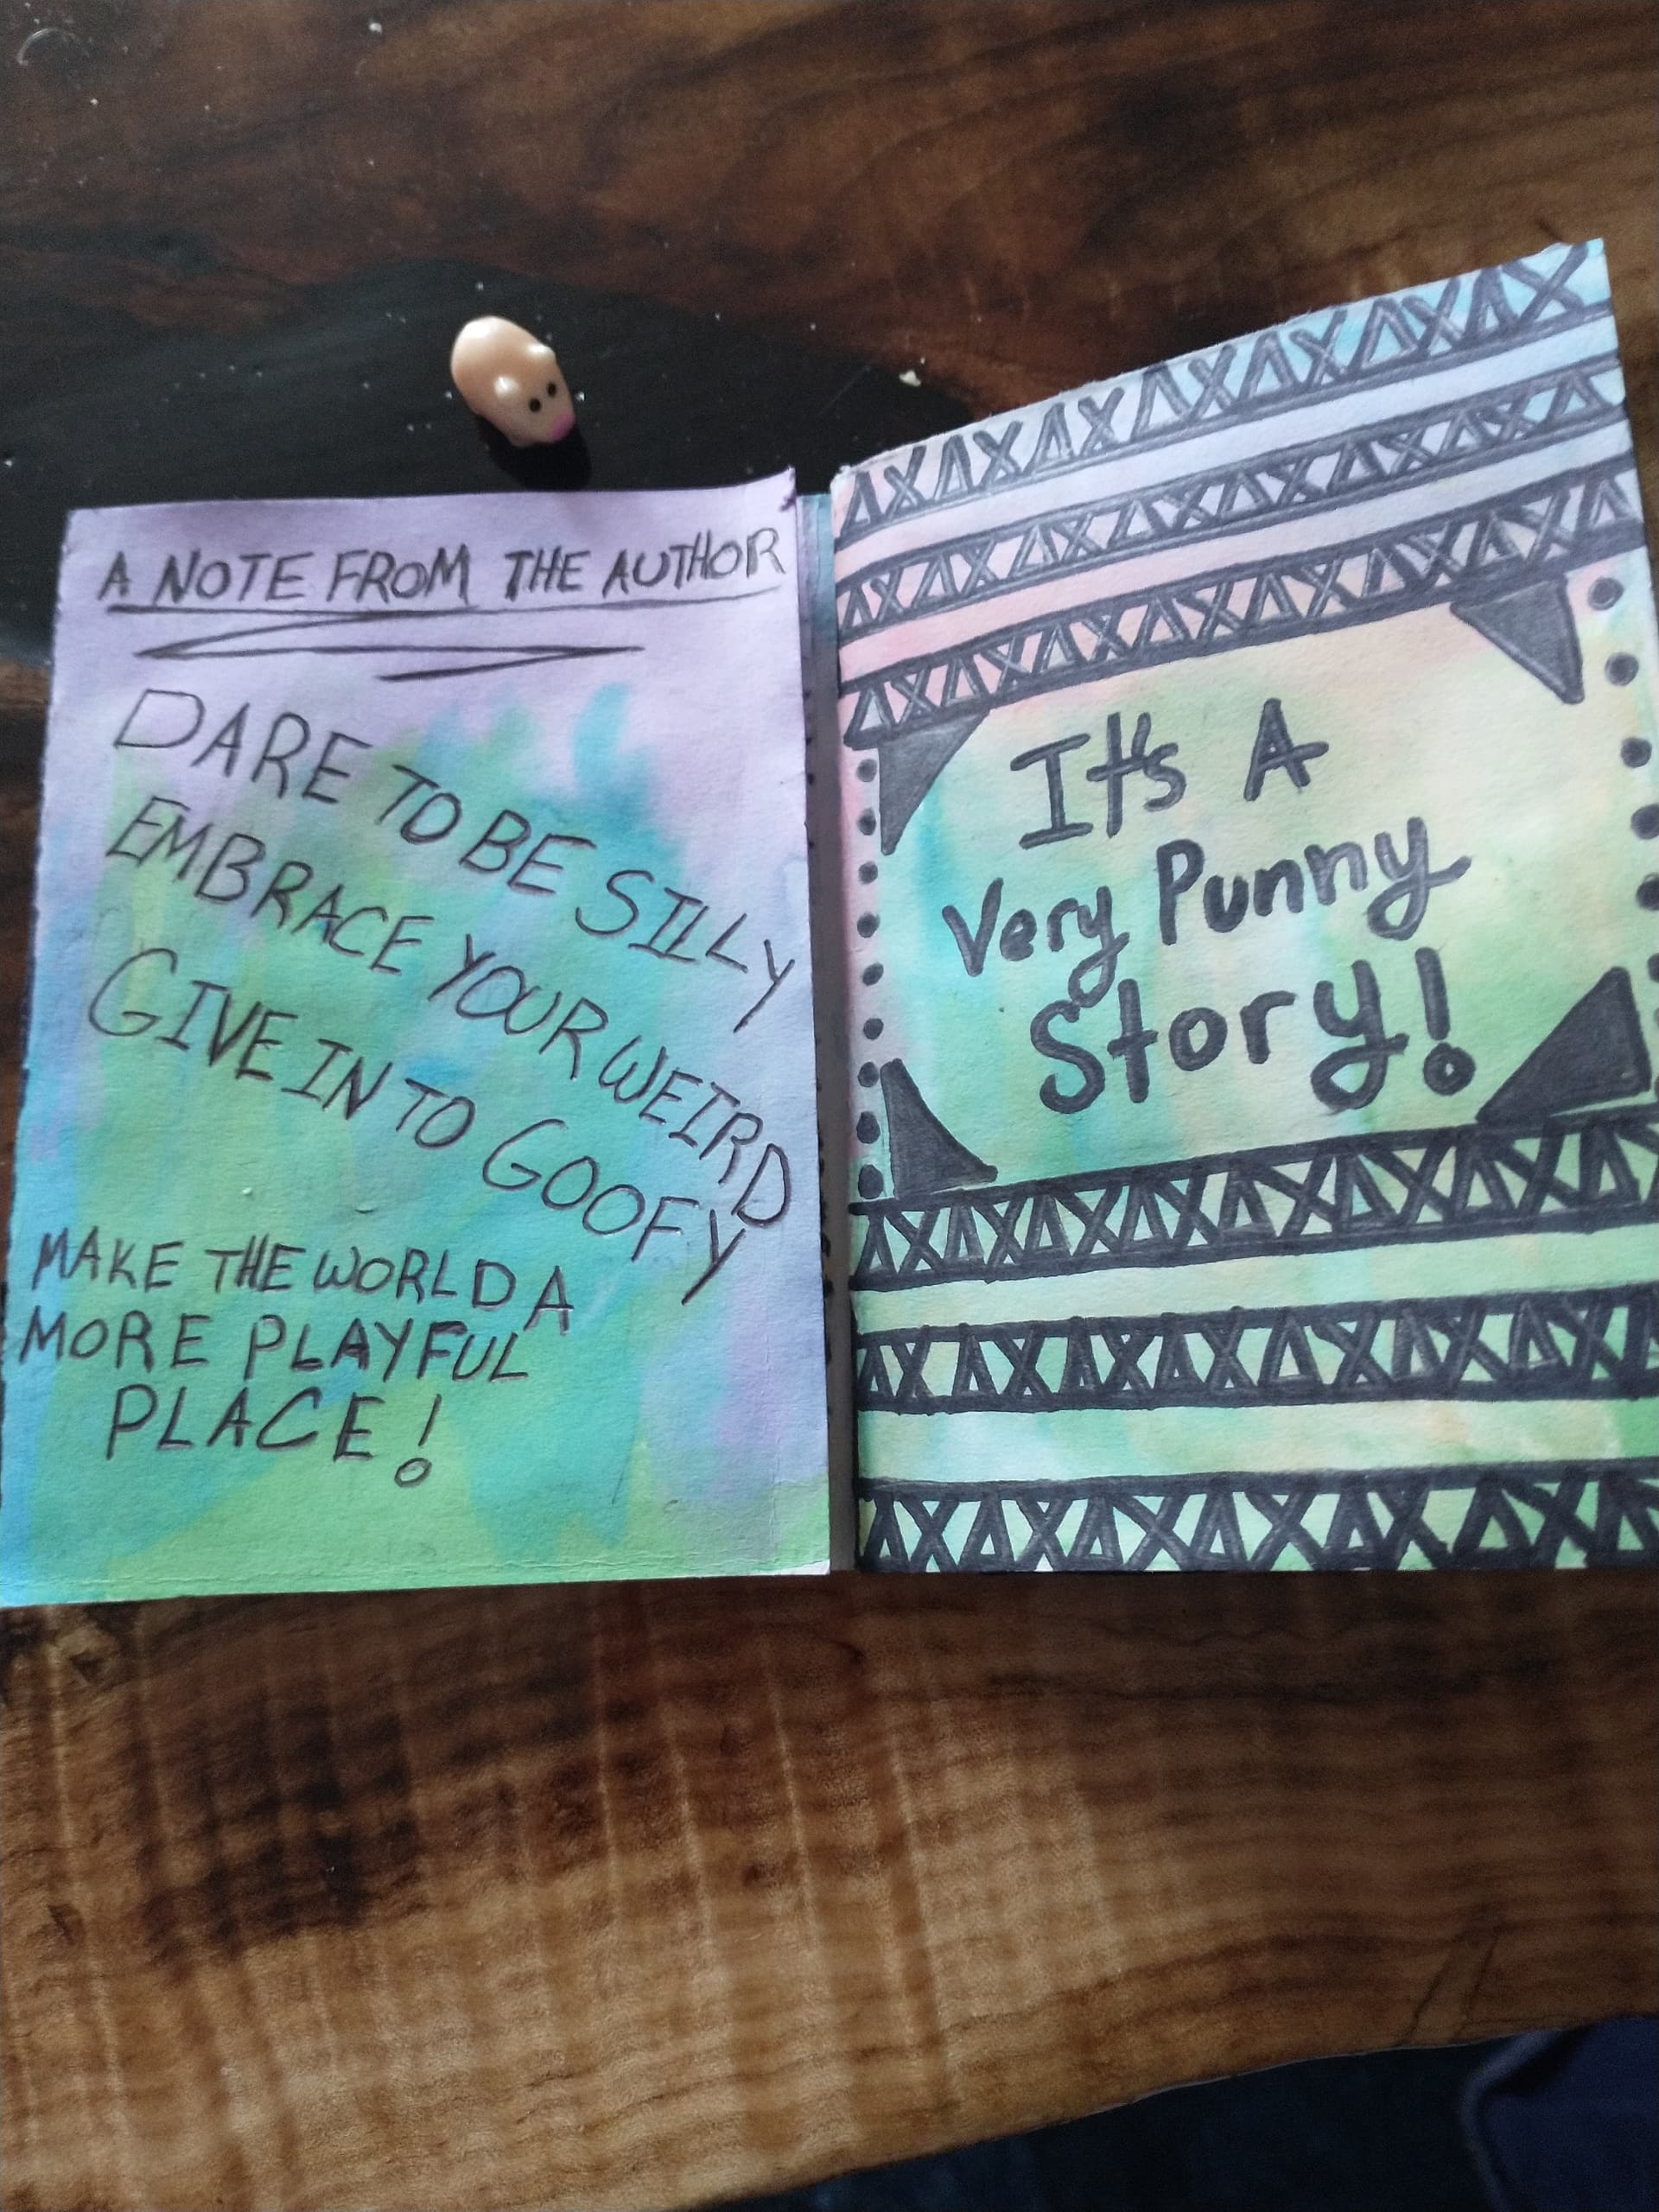 A NOTE FROM THE AUTHOR
DARE TO BE SILLY
EMBRACE YOUR WEIRD
GIVE IN TO GOOFY
MAKE THE WORLD A
MORE PLAYFUL
PLACE!
It's A
Very Punny
Story!